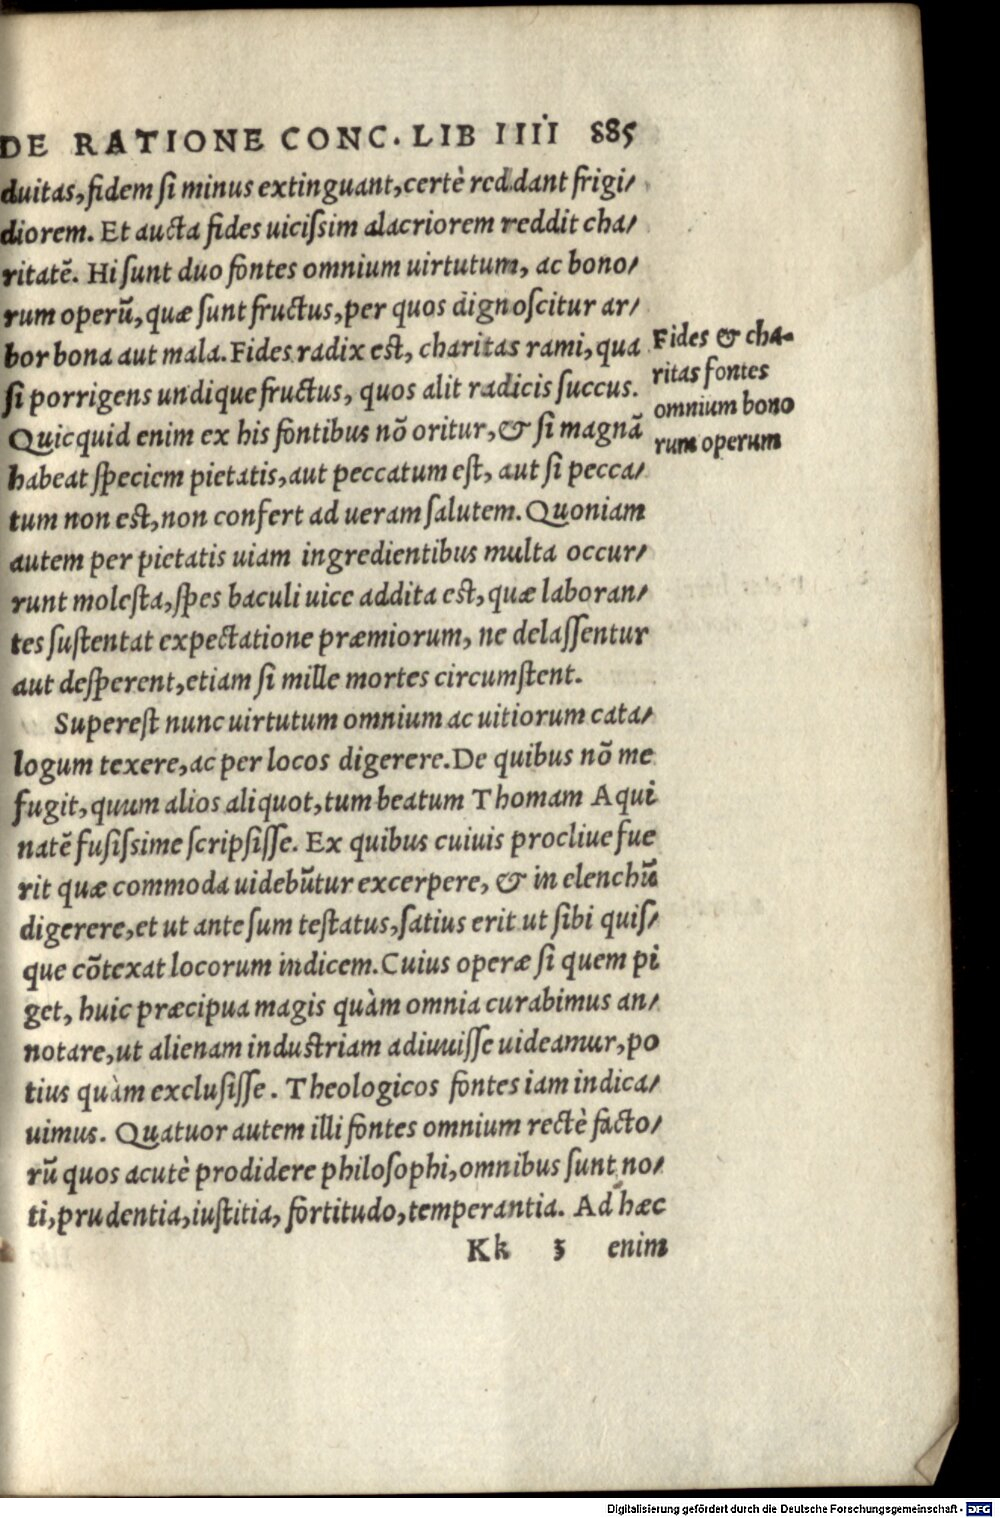 DE RATIONE CONC. LIB IIII 885
duitas, fidem ſi minus extinguant, certè reddant frigi/
diorem. Et aucta fides uiciſsim alacriorem reddit cha/
ritatē. Hi ſunt duo fontes omnium uirtutum, ac bono/
rum operū, quæ ſunt fructus, per quos dignoſcitur ar/
bor bona aut mala. Fides radix eſt, charitas rami, qua
ſi porrigens undique fructus, quos alit radicis ſuccus.
Quicquid enim ex his fontibus nō oritur, & ſi magnā
habeat ſpeciem pietatis, aut peccatum eſt, aut ſi pecca/
tum non eſt, non confert ad ueram ſalutem. Quoniam
autem per pietatis uiam ingredientibus multa occur/
runt moleſta, ſpes baculi uice addita eſt, quæ laboran/
tes ſuſtentat expectatione præmiorum, ne delaſſentur
aut deſperent, etiam ſi mille mortes circumſtent.
Supereſt nunc uirtutum omnium ac uitiorum cata/
logum texere, ac per locos digerere. De quibus nō me
fugit, quum alios aliquot, tum beatum Thomam Aqui
natē fuſiſsime ſcripſiſſe. Ex quibus cuiuis procliue fue
rit quæ commoda uidebūtur excerpere, & in elenchū
digerere, et ut ante ſum teſtatus, ſatius erit ut ſibi quiſ/
que cōtexat locorum indicem. Cuius operæ ſi quem pi
get, huic præcipua magis quàm omnia curabimus an/
notare, ut alienam induſtriam adiuuiſſe uideamur, po
tius quàm excluſiſſe. Theologicos fontes iam indica/
uimus. Quatuor autem illi fontes omnium rectè facto/
rū quos acutè prodidere philoſophi, omnibus ſunt no/
ti, prudentia, iuſtitia, fortitudo, temperantia. Ad hæc
Kk 3 enim
Fides & cha-
ritas fontes
omnium bono
rum operum
Digitalisierung gefördert durch die Deutsche Forschungsgemeinschaft - DFG